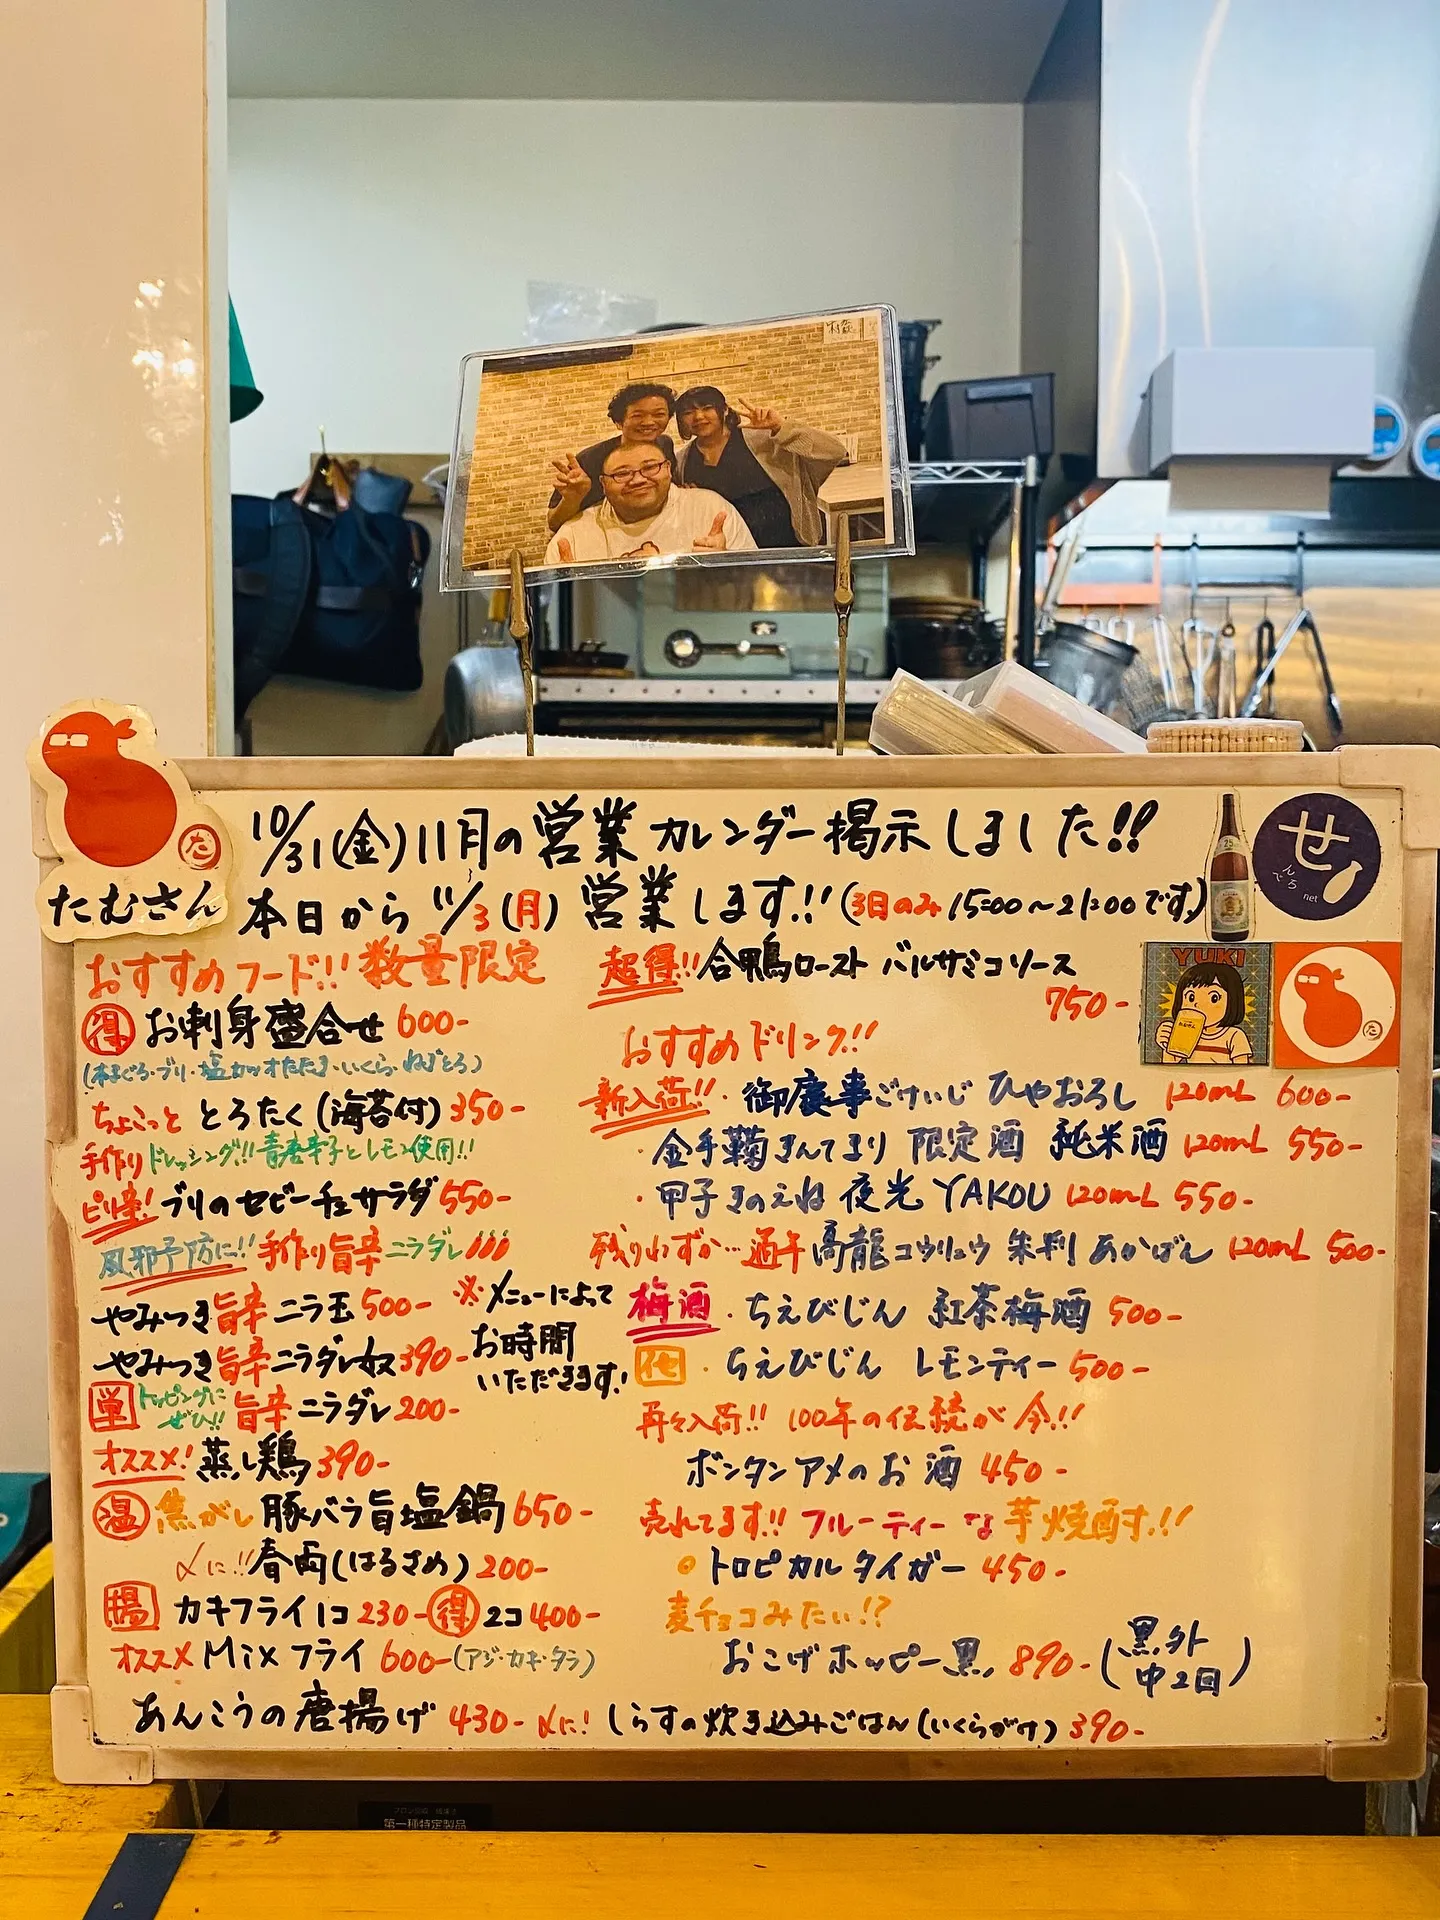 10/31(金)11月の営業カレンダー掲示しました!!
本日から11/3(月)営業します!!(3日のみ15:00〜21:00です)
たむさん
た
せ
んべろ
net
おすすめフード!! 数量限定
得 お刺身盛合せ 600-
(本まぐろ・ブリ・塩カツオたたき・いくら・ねぎとろ)
ちょこっと とろたく(海苔付)350-
手作りドレッシング!!青唐辛子とレモン使用!!
ピリ辛!ブリのセビーチェサラダ550-
風邪予防に!!手作り旨辛ニラダレ!!!
やみつき旨辛ニラ玉500-
やみつき旨辛ニラダレ奴390-
※メニューによって
お時間
いただきます!
単 トッピングに
ぜひ!!
旨辛ニラダレ200-
オススメ!蒸し鶏390-
温 焦がし豚バラ旨塩鍋650-
〆に!!春雨(はるさめ)200-
揚 カキフライ1コ230-得2コ400-
オススメMixフライ 600-(アジ・カキ・タラ)
あんこうの唐揚げ 430-〆に!しらすの炊き込みごはん(いくらがけ)390-
超得!!合鴨ロースト バルサミコソース
750-
YUKI
た
おすすめドリンク!!
新入荷!!・御慶事ごけいじ ひやおろし 120mL 600-
・金手鞠きんてまり 限定酒 純米酒 120mL 550-
・甲子きのえね 夜光 YAKOU 120mL 550-
残りわずか…通年 高龍コウリュウ 朱判 あかばん 120mL 500-
梅酒・ちえびじん 紅茶梅酒 500-
他・ちえびじん レモンティー 500-
再々入荷!! 100年の伝統が今!!
ボンタンアメのお酒 450-
売れてます!! フルーティーな芋焼酎す!!
トロピカルタイガー 450-
麦チョコみたい!?
おこげホッピー黒 890-(黒外
中2回)
第一種特定製品